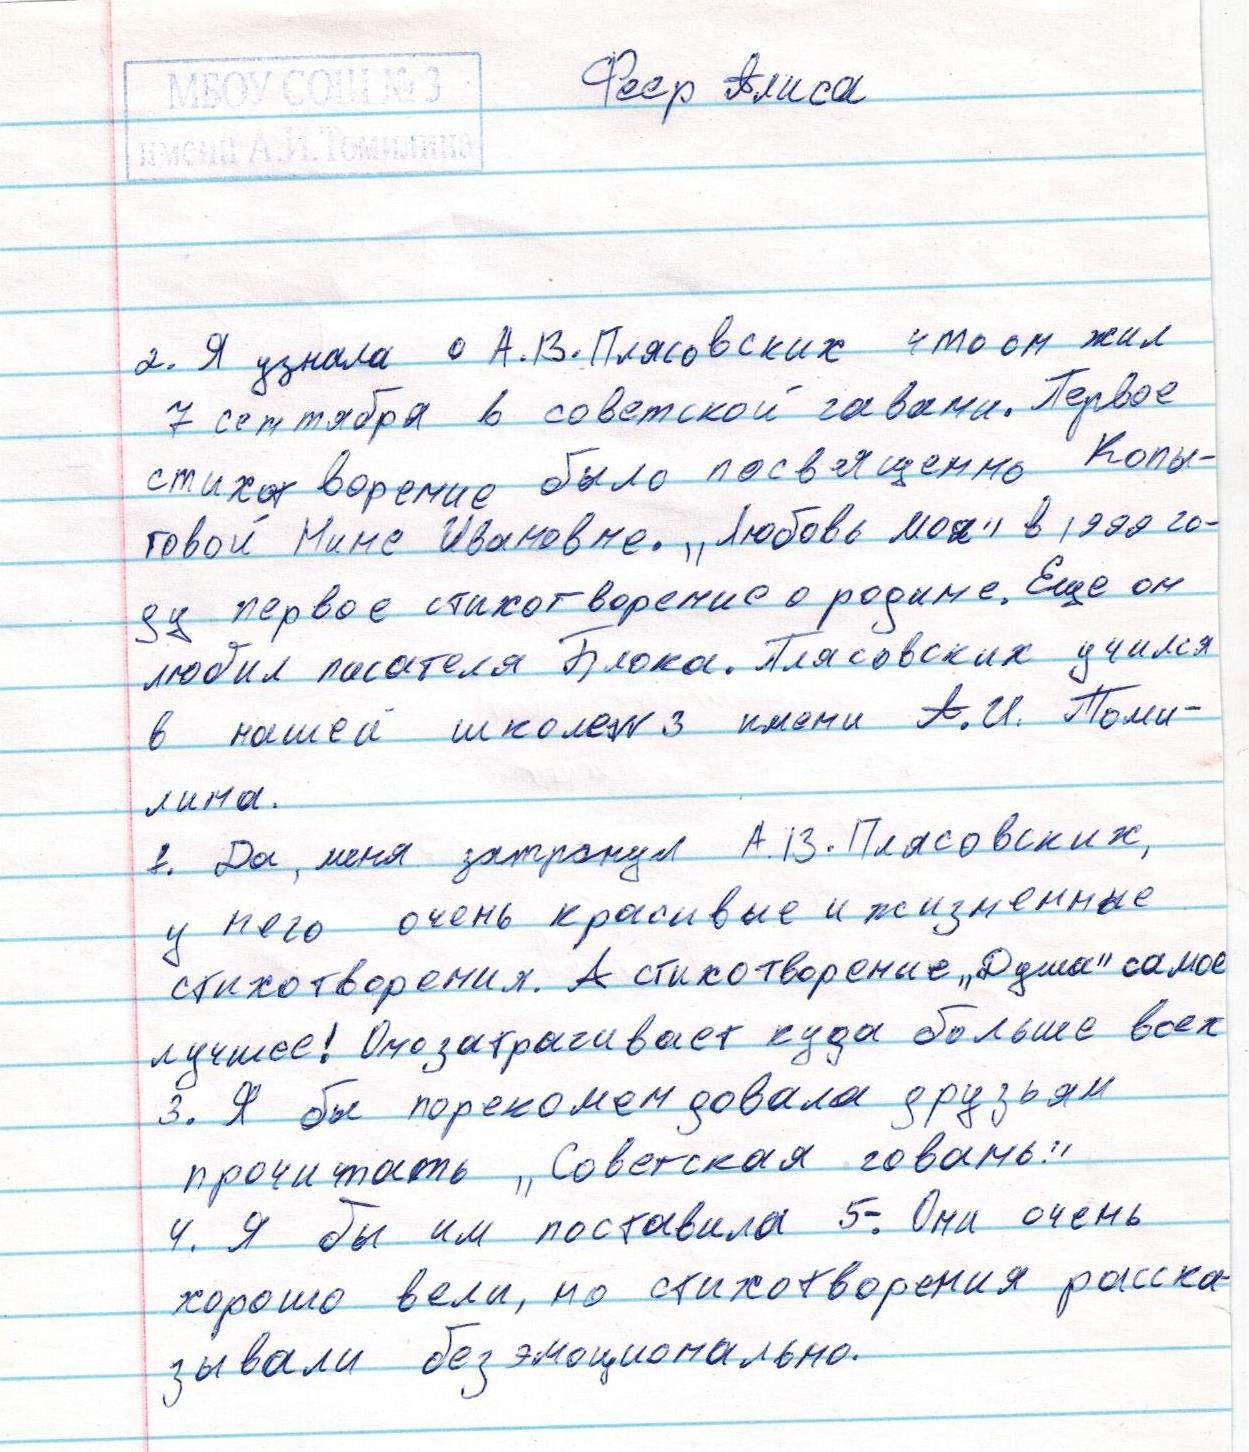 МБОУ СОШ № 3
имени А.И.Томилина
Феер Алиса
2. Я узнала о А.В.Плясовских что он жил
7 сентября в советской гавани. Первое
стихотворение было посвященно Копы-
товой Нине Ивановне. „Любовь моя" в 1999 го-
ду первое стихотворение о родине. Еще он
любил писателя Блока. Плясовских учился
в нашей школе№3 имени А.И. Томи-
лина.
1. Да, меня затронул А.В.Плясовских,
у него очень красивые и жизненные
стихотворения. А стихотворение „Душа" самое
лучшее! Оно затрагивает куда больше всех
3. Я бы порекомендовала друзьям
прочитать „Советская говань."
4. Я бы им поставила 5-. Они очень
хорошо вели, но стихотворения расска-
зывали без эмоционально.